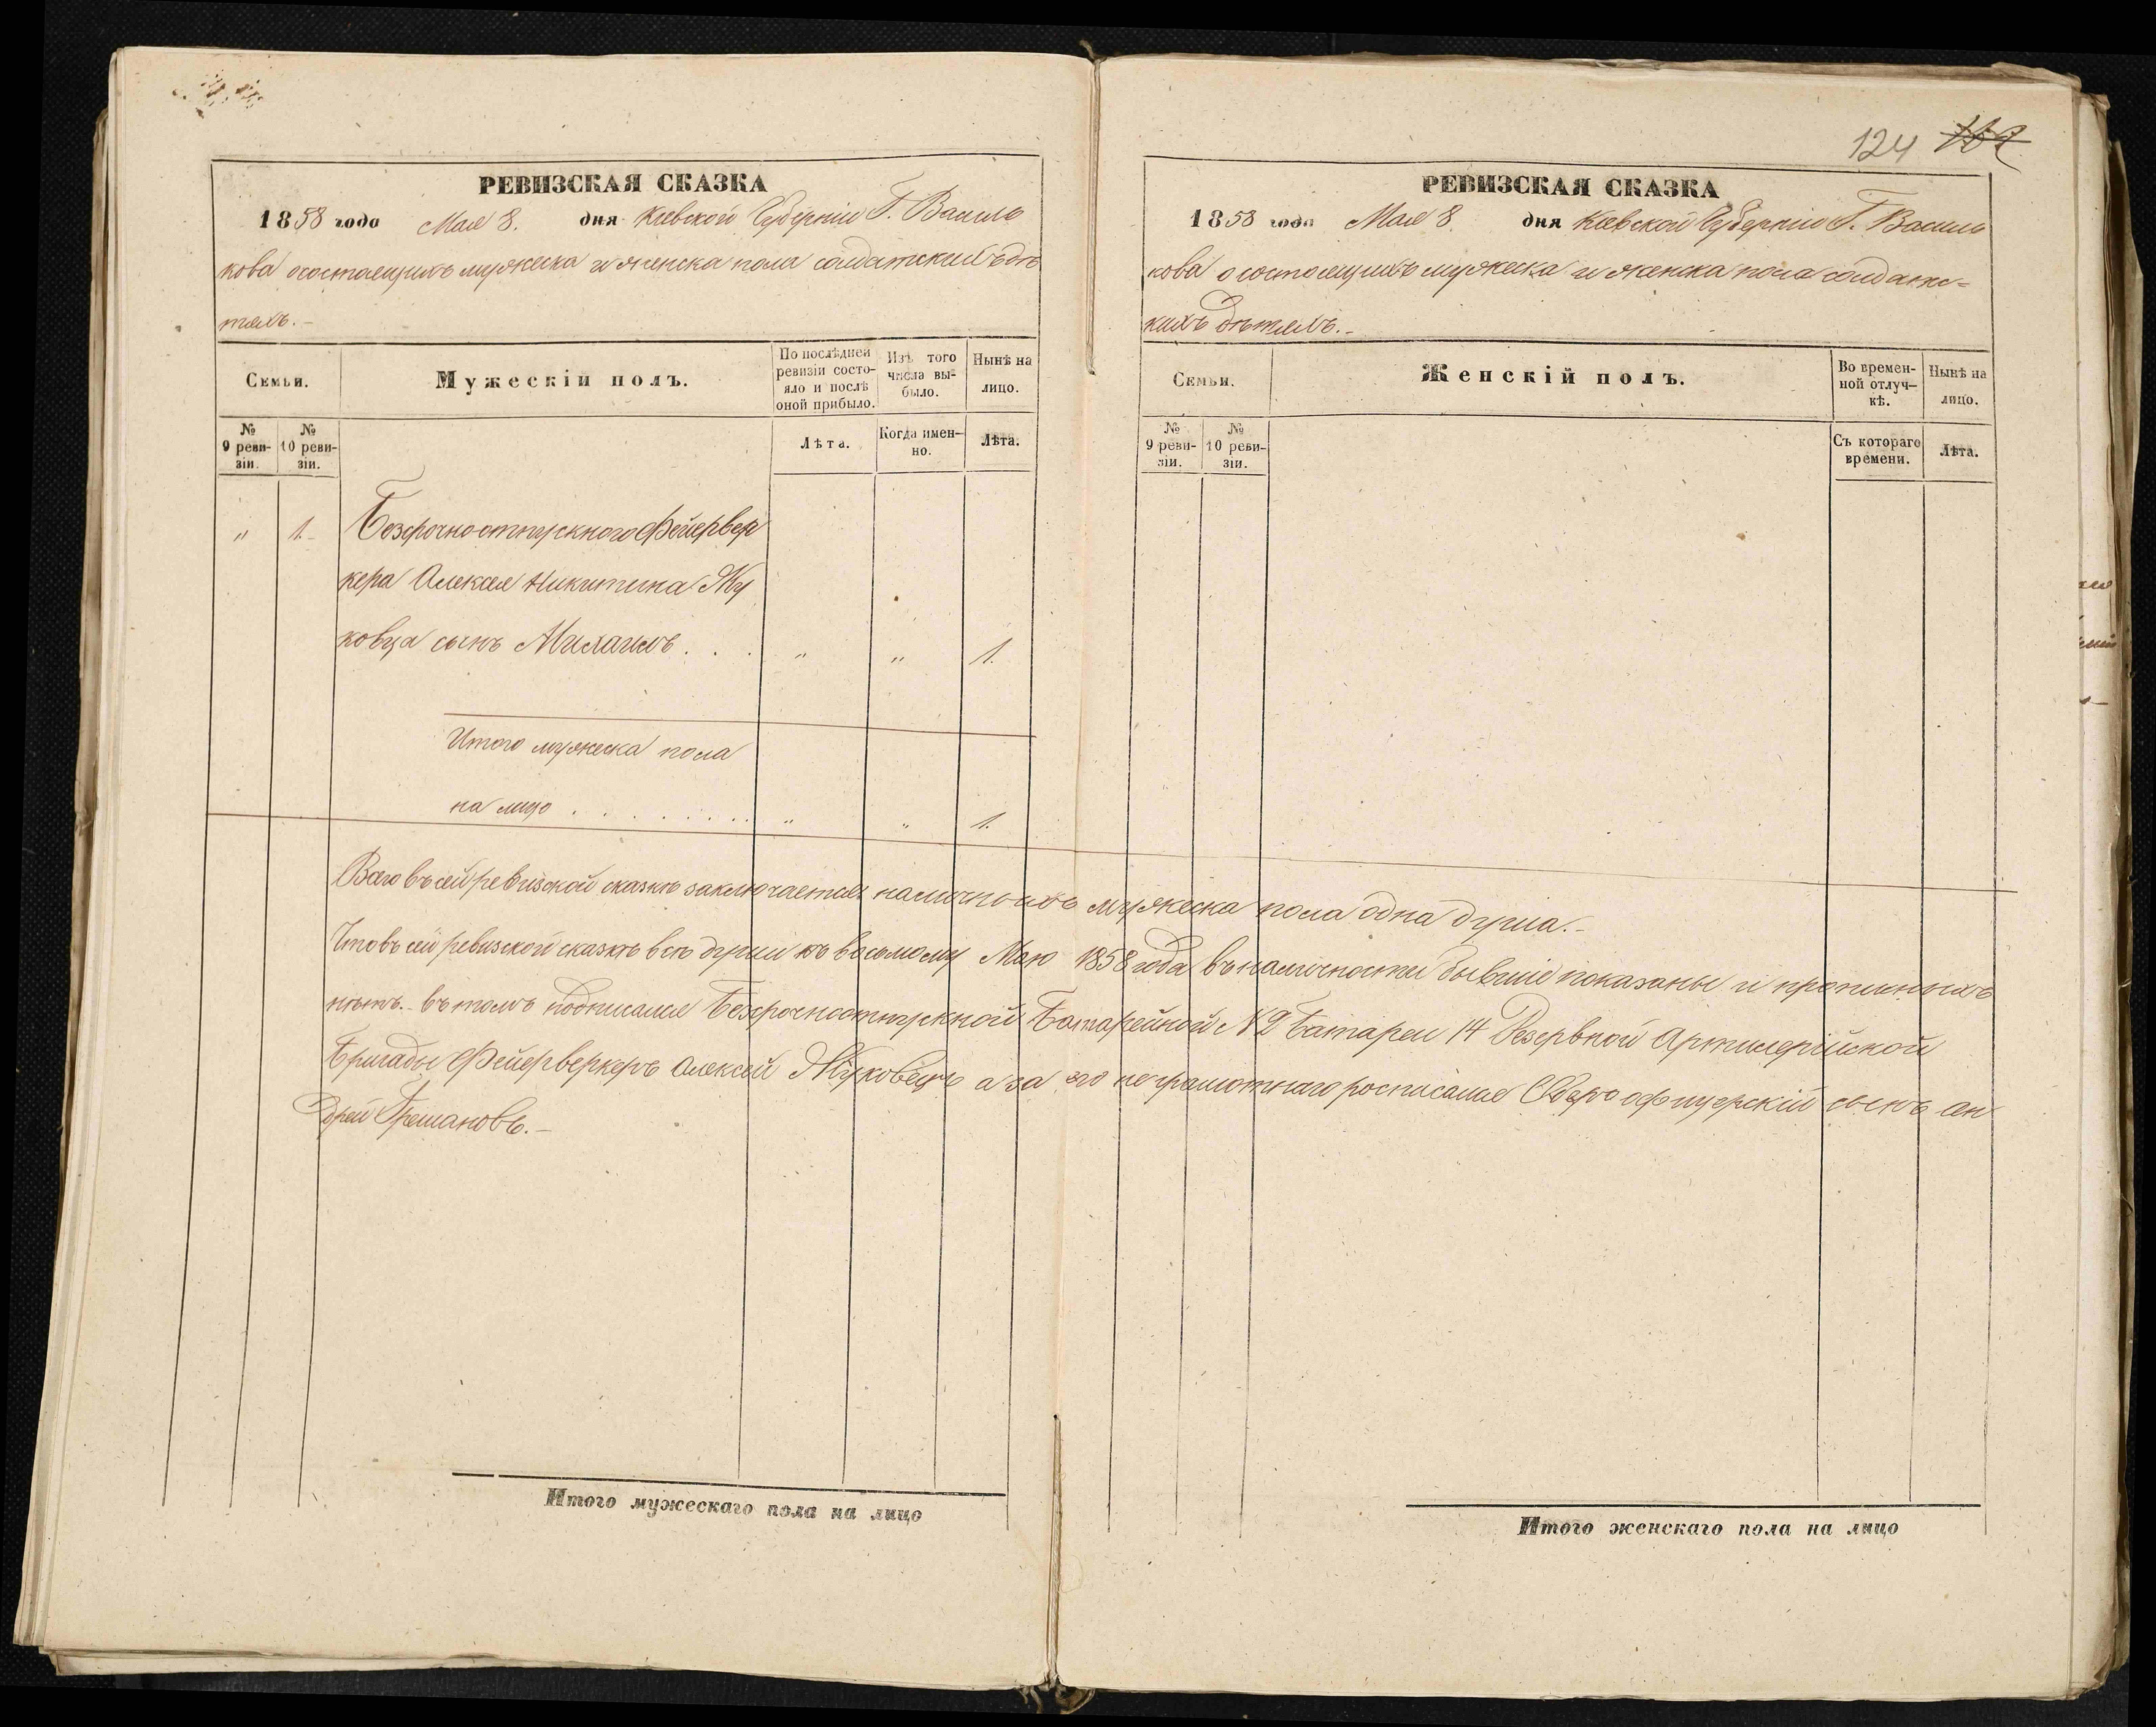 124
РЕВИЗСКАЯ СКАЗКА
1858 года Мая 8. дня Кіевской Губерніи Г. Василь
кова о состаящихъ мужеска и женска пола солдатскихъ дѣ
тяхъ.-
Семьи.
Мужескіи полъ.
По послѣдней ревизіи состо-
яло и послѣ
оной прибыло.
Изъ того
числа вы-
было.
Нынѣ на
лицо.
№
9 реви-
зіи.
№
10 реви-
зіи.
Лѣта.
Когда имен-
но.
Лѣта.
" 1. Безсрочноотпускного Фейервер
кера Алексея Никитина Жу
ковца сынъ Михаилъ . . . " " 1.
Итого мужеска пола
на лицо . . . . . . . . " " 1.
РЕВИЗСКАЯ СКАЗКА
1858 года Мая 8. дня Кіевской Губерніи Г. Василь
кова о состоящихъ мужеска и женска пола солдатс=
кихъ дѣтяхъ.-
Семьи.
Женскій полъ.
Во времен-
ной отлуч-
кѣ.
Нынѣ на
лицо.
№
9 реви-
зіи.
№
10 реви-
зіи.
Съ котораго
времени.
Лѣта.
Всего въ сей ревизской сказкѣ заключается наличныхъ мужеска пола одна душа.-
Что въ сей ревизской сказкѣ всѣ души къ восьмому Маю 1858 года въ наличности бывшіе показаны и прописныхъ
нѣтъ.- въ томъ подписался Безсрочноотпускной Батарейной №2 Батареи 14 Резервной Артилерійской
Бригады Фейерверкеръ Алексей Жуковецъ а за его неграмотнаго росписался Оберъ офицерскій сынъ Ан
дрей Грешановъ.-
Итого мужескаго пола на лицо
Итого женскаго пола на лицо